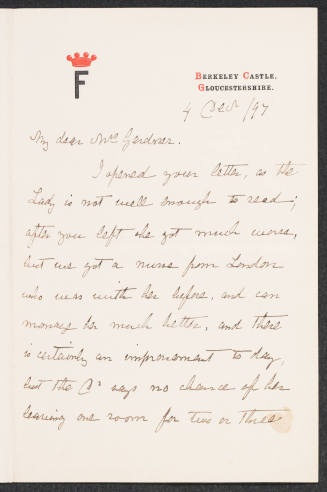 F
BERKELEY CASTLE,
GLOUCESTERSHIRE.
4 Decr/97
My dear Mrs Gardner.
I opened your letter, as the
Lady is not well enough to read;
after you left she got much worse,
but we got a nurse from London
who was with her before, and can
manage her much better, and there
is certainly an improvement to day,
but the Dr says no chance of her
leaving one room for two or three